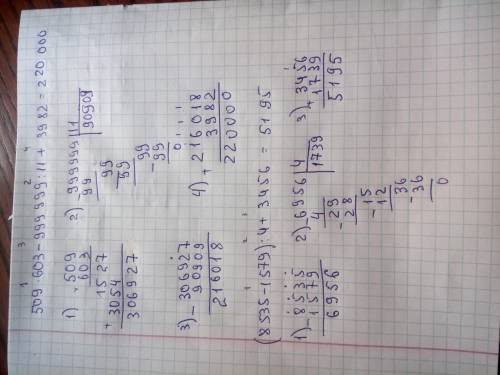 509·603-999999:11+3982=220000
1 3 2 4
1) ×509
603
+1527
3054
306927
2) -999999|11
99 |90909
99
-99
99
-99
0
3) -306927
90909
216018
4) +216018
3982
220000
(8535-1579):4+3456=5195
1 2 3
1) -8535
1579
6956
2) -6956|4
4 |1739
-29
28
-15
12
-36
36
0
3) +3456
1739
5195